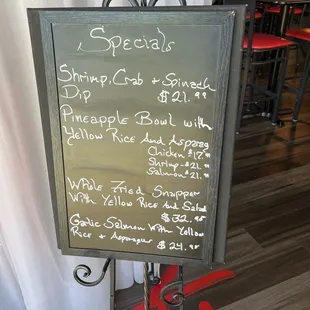 Specials
Shrimp, Crab + Spinach
Dip $21.99
Pineapple Bowl with
Yellow Rice And Asparag
Chicken $17.99
Shrimp-$21.99
Salmon-$21.99
Whole Fried Snapper
With Yellow Rice And Salad
$32.95
Garlic Salmon With Yellow
Rice + Asparagus $24.95